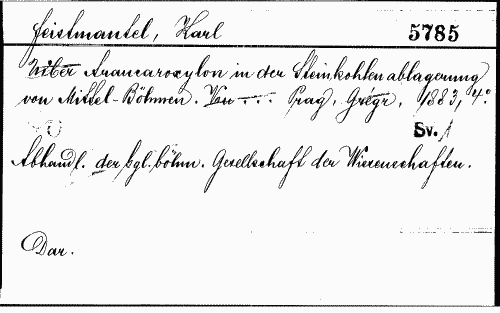 Feistmantel, Karl 5785
Über Araucaroxylon in der Steinkohlenablagerung
von Mittel-Böhmen. Prag, Grégr, 1883, 4°.
Sv. 1
Abhandl. der kgl. böhm. Gesellschaft der Wissenschaften.
Dar.